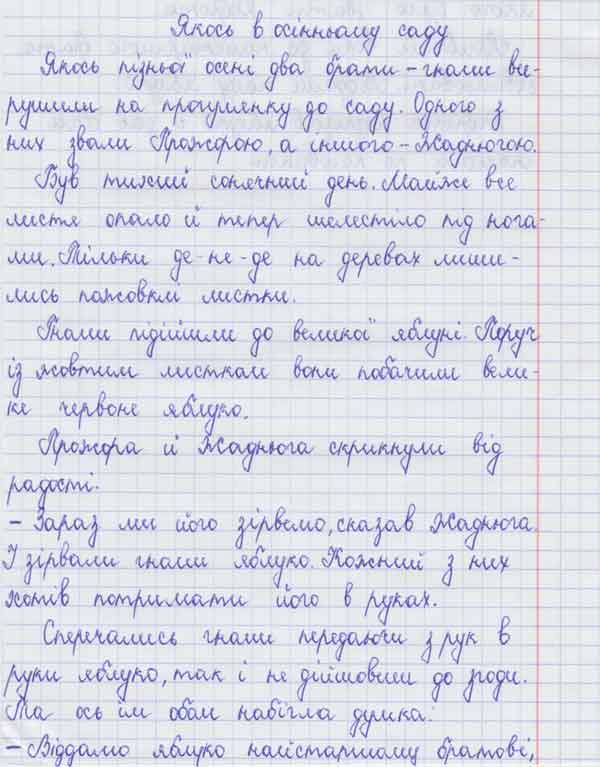 Якось в осінньому саду
Якось пізньої осені два брати-гноми ви-
рушили на прогулянку до саду. Одного з
них звали Прожорою, а іншого - Жаднюгою.
Був тихий сонячний день. Майже все
листя опало й тепер шелестіло під нога-
ми. Тільки де-не-де на деревах лиши-
лись пожовклі листки.
Гноми підійшли до великої яблуні. Поруч
із жовтим листком вони побачили вели-
ке червоне яблуко.
Прожора й Жаднюга скрикнули від
радості.
- Зараз ми його зірвемо, сказав Жаднюга.
І зірвали гноми яблуко. Кожний з них
хотів потримати його в руках.
Сперечались гноми передаючи з рук в
руки яблуко, так і не дійшовши до згоди.
Та ось їм обом набігла думка:
- Віддамо яблуко найстаршому братові,